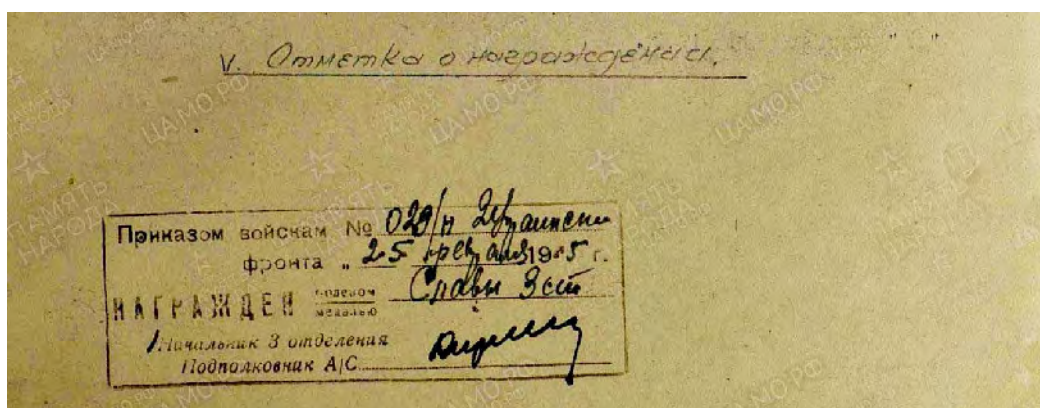 V. Отметка о награждении.
Приказом войскам № 029/н 2 Украинск
фронта „ 25 февраля 1945 г.
НАГРАЖДЕН орденом Славы 3 ст
медалью
Начальник 3 отделения
Подполковник А/С
ПАМЯТЬ НАРОДА
ЦАМО РФ